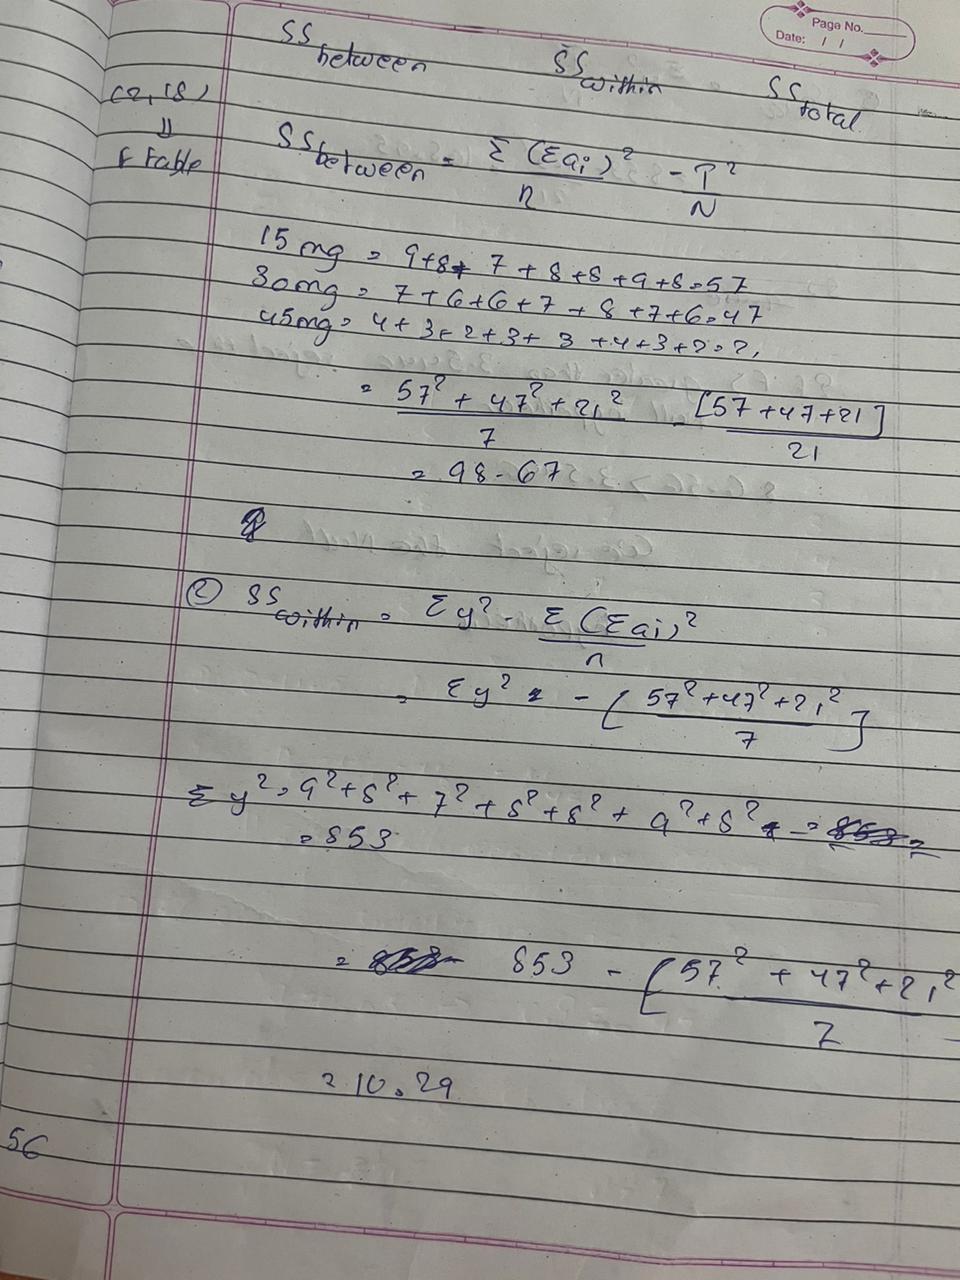 Page No.
Date: / /
SS between SS within SS total
(2, 18)
⇓
F table
SS between = Σ (Σai)² / n - T² / N
15mg = 9+8+ 7 + 8 +8 +9 +8 = 57
30mg = 7 + 6 +6 +7 + 8 +7 +6 = 47
45mg = 4 + 3 + 2 + 3 + 3 + 4 + 3 + 2 = 2,
= 57² + 47² + 21² / 7 - [57 + 47 + 21] / 21
= 98.67
② SS within = Σy² - Σ (Σai)² / n
= Σy² - [57² + 47² + 21² / 7]
Σy² = 9² + 8² + 7² + 8² + 8² + 9² + 8² =
= 853
= 853 - [57² + 47² + 21² / 7
= 10.29
56